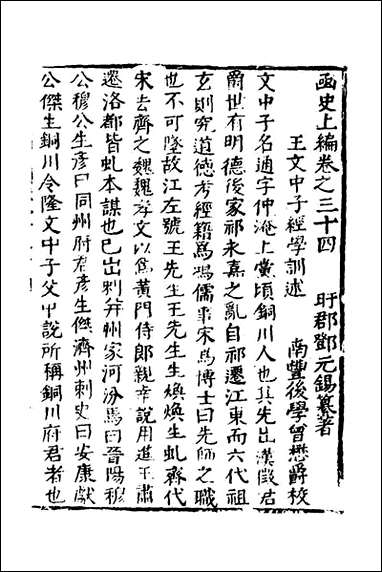 函史上編卷之三十四　　盱郡鄧元錫纂著
王文中子經學訓述　　南豐後學曾懋爵校
文中子名通字仲淹上黨頃銅川人也其先出漢徵君
爵世有明德後家祁永嘉之亂自祁遷江東而六代祖
玄則究道德考經籍爲鴻儒事宋爲博士曰先師之職
也不可墜故江左號王先生王先生生煥煥生虬齊代
宋去齊之魏魏孝文以爲黃門侍郎親幸說用進王肅
遷洛都皆虬本謀也已出刺并州家河汾焉曰晉陽穆
公穆公生彦曰同州府君彥生傑濟州刺史曰安康獻
公傑生銅川令隆文中子父中說所稱銅川府君者也